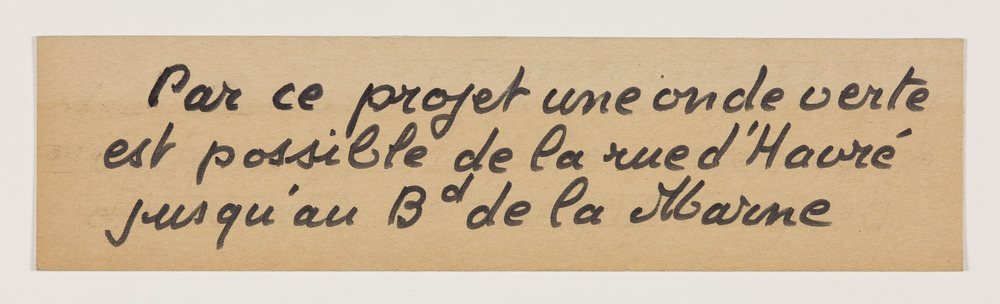 Par ce projet une onde verte
est possible de la rue d'Havré
jusqu'au Bd de la Marne